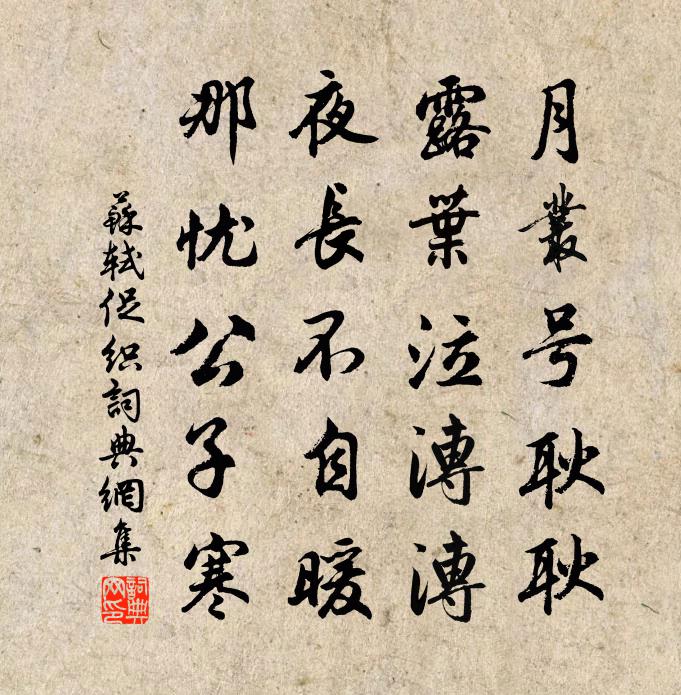 月叢号耿耿
露葉泣漙漙
夜長不自暖
那忧公子寒
蘇軾促织詞典網集
詞典